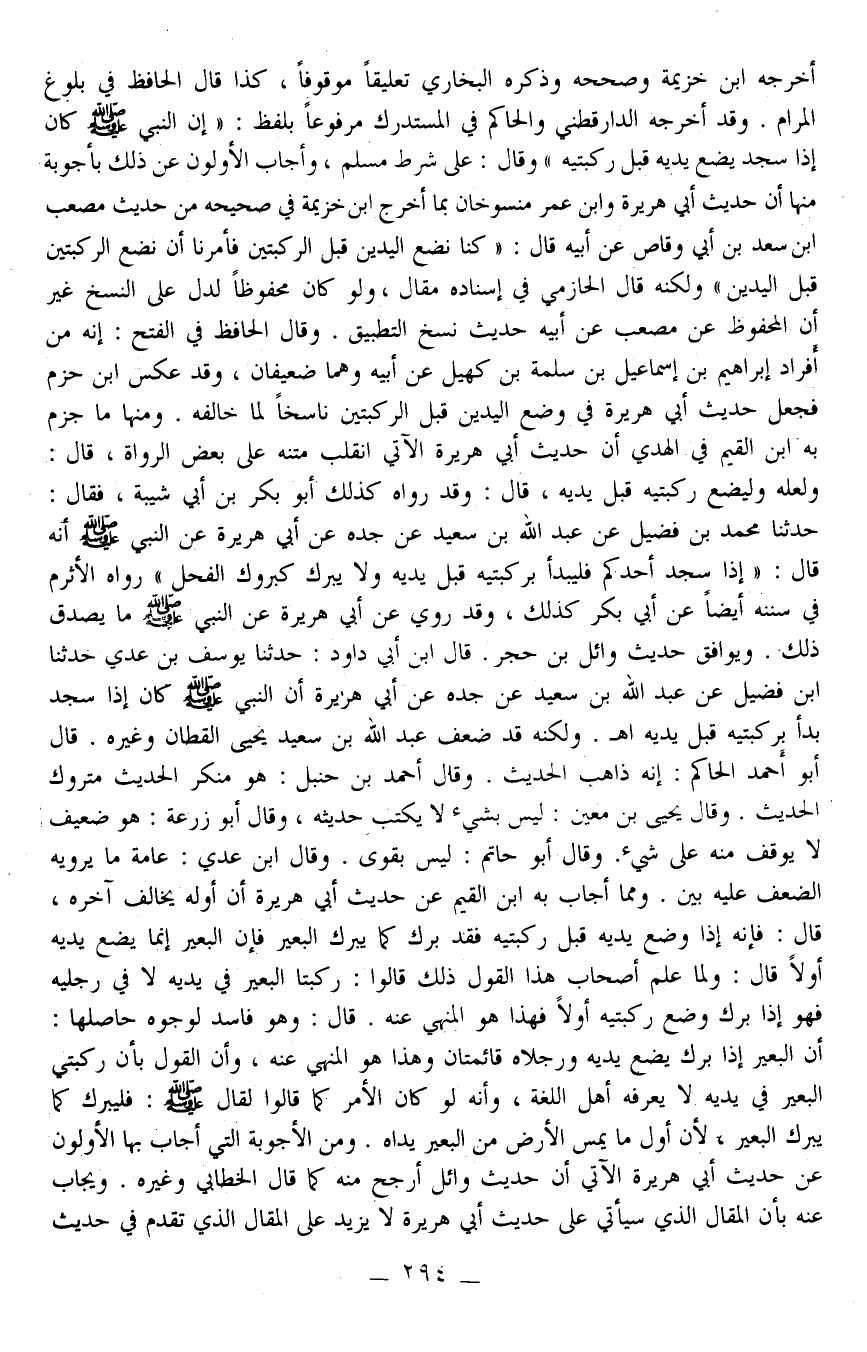 أخرجه ابن خزيمة وصححه وذكره البخاري تعليقاً موقوفاً ، كذا قال الحافظ في بلوغ
المرام . وقد أخرجه الدارقطني والحاكم في المستدرك مرفوعاً بلفظ : « إن النبي ﷺ كان
إذا سجد يضع يديه قبل ركبتيه » وقال : على شرط مسلم ، وأجاب الأولون عن ذلك بأجوبة
منها أن حديث أبي هريرة وابن عمر منسوخان بما أخرج ابن خزيمة في صحيحه من حديث مصعب
ابن سعد بن أبي وقاص عن أبيه قال : « كنا نضع اليدين قبل الركبتين فأمرنا أن نضع الركبتين
قبل اليدين » ولكنه قال الحازمي في إسناده مقال ، ولو كان محفوظاً لدل على النسخ غير
أن المحفوظ عن مصعب عن أبيه حديث نسخ التطبيق . وقال الحافظ في الفتح : إنه من
أفراد إبراهيم بن إسماعيل بن سلمة بن كهيل عن أبيه وهما ضعيفان ، وقد عكس ابن حزم
فجعل حديث أبي هريرة في وضع اليدين قبل الركبتين ناسخاً لما خالفه . ومنها ما جزم
به ابن القيم في الهدي أن حديث أبي هريرة الآتي انقلب متنه على بعض الرواة ، قال :
ولعله وليضع ركبتيه قبل يديه ، قال : وقد رواه كذلك أبو بكر بن أبي شيبة ، فقال :
حدثنا محمد بن فضيل عن عبد الله بن سعيد عن جده عن أبي هريرة عن النبي ﷺ أنه
قال : « إذا سجد أحدكم فليبدأ بركبتيه قبل يديه ولا يبرك كبروك الفحل » رواه الأثرم
في سننه أيضاً عن أبي بكر كذلك ، وقد روي عن أبي هريرة عن النبي ﷺ ما يصدق
ذلك . ويوافق حديث وائل بن حجر . قال ابن أبي داود : حدثنا يوسف بن عدي حدثنا
ابن فضيل عن عبد الله بن سعيد عن جده عن أبي هريرة أن النبي ﷺ كان إذا سجد
بدأ بركبتيه قبل يديه اهـ . ولكنه قد ضعف عبد الله بن سعيد يحيى القطان وغيره . قال
أبو أحمد الحاكم : إنه ذاهب الحديث . وقال أحمد بن حنبل : هو منكر الحديث متروك
الحديث . وقال يحيى بن معين : ليس بشيء لا يكتب حديثه ، وقال أبو زرعة : هو ضعيف
لا يوقف منه على شيء. وقال أبو حاتم : ليس بقوى . وقال ابن عدي : عامة ما يرويه
الضعف عليه بين . ومما أجاب به ابن القيم عن حديث أبي هريرة أن أوله يخالف آخره ،
قال : فإنه إذا وضع يديه قبل ركبتيه فقد برك كما يبرك البعير فإن البعير إنما يضع يديه
أولاً قال : ولما علم أصحاب هذا القول ذلك قالوا : ركبتا البعير في يديه لا في رجليه
فهو إذا برك وضع ركبتيه أولاً فهذا هو المنهي عنه . قال : وهو فاسد لوجوه حاصلها :
أن البعير إذا برك يضع يديه ورجلاه قائمتان وهذا هو المنهي عنه ، وأن القول بأن ركبتي
البعير في يديه لا يعرفه أهل اللغة ، وأنه لو كان الأمر كما قالوا لقال ﷺ : فليبرك كما
يبرك البعير ، لأن أول ما يمس الأرض من البعير يداه . ومن الأجوبة التي أجاب بها الأولون
عن حديث أبي هريرة الآتي أن حديث وائل أرجح منه كما قال الخطابي وغيره . ويجاب
عنه بأن المقال الذي سيأتي على حديث أبي هريرة لا يزيد على المقال الذي تقدم في حديث
_ ٢٩٤ _